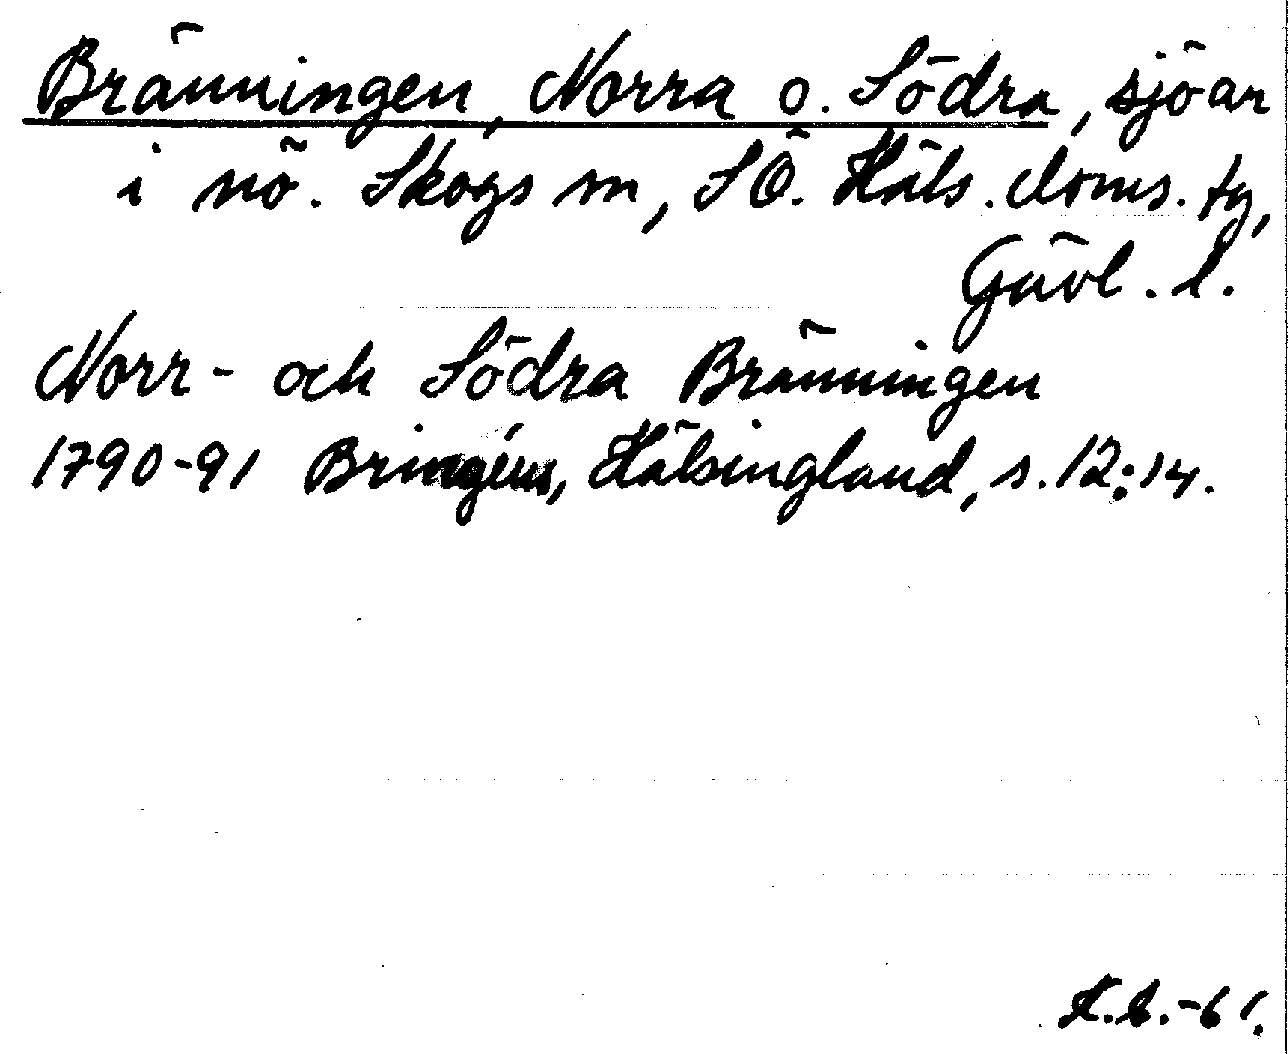 Bränningen, Norra o. Södra, sjöar
i nö. Skogs sn, SÖ. Häls. doms. tg,
Gävl. l.
Norr- och Södra Bränningen
1790-91 Bringéus, Hälsingland, s. 12:14.
-61.